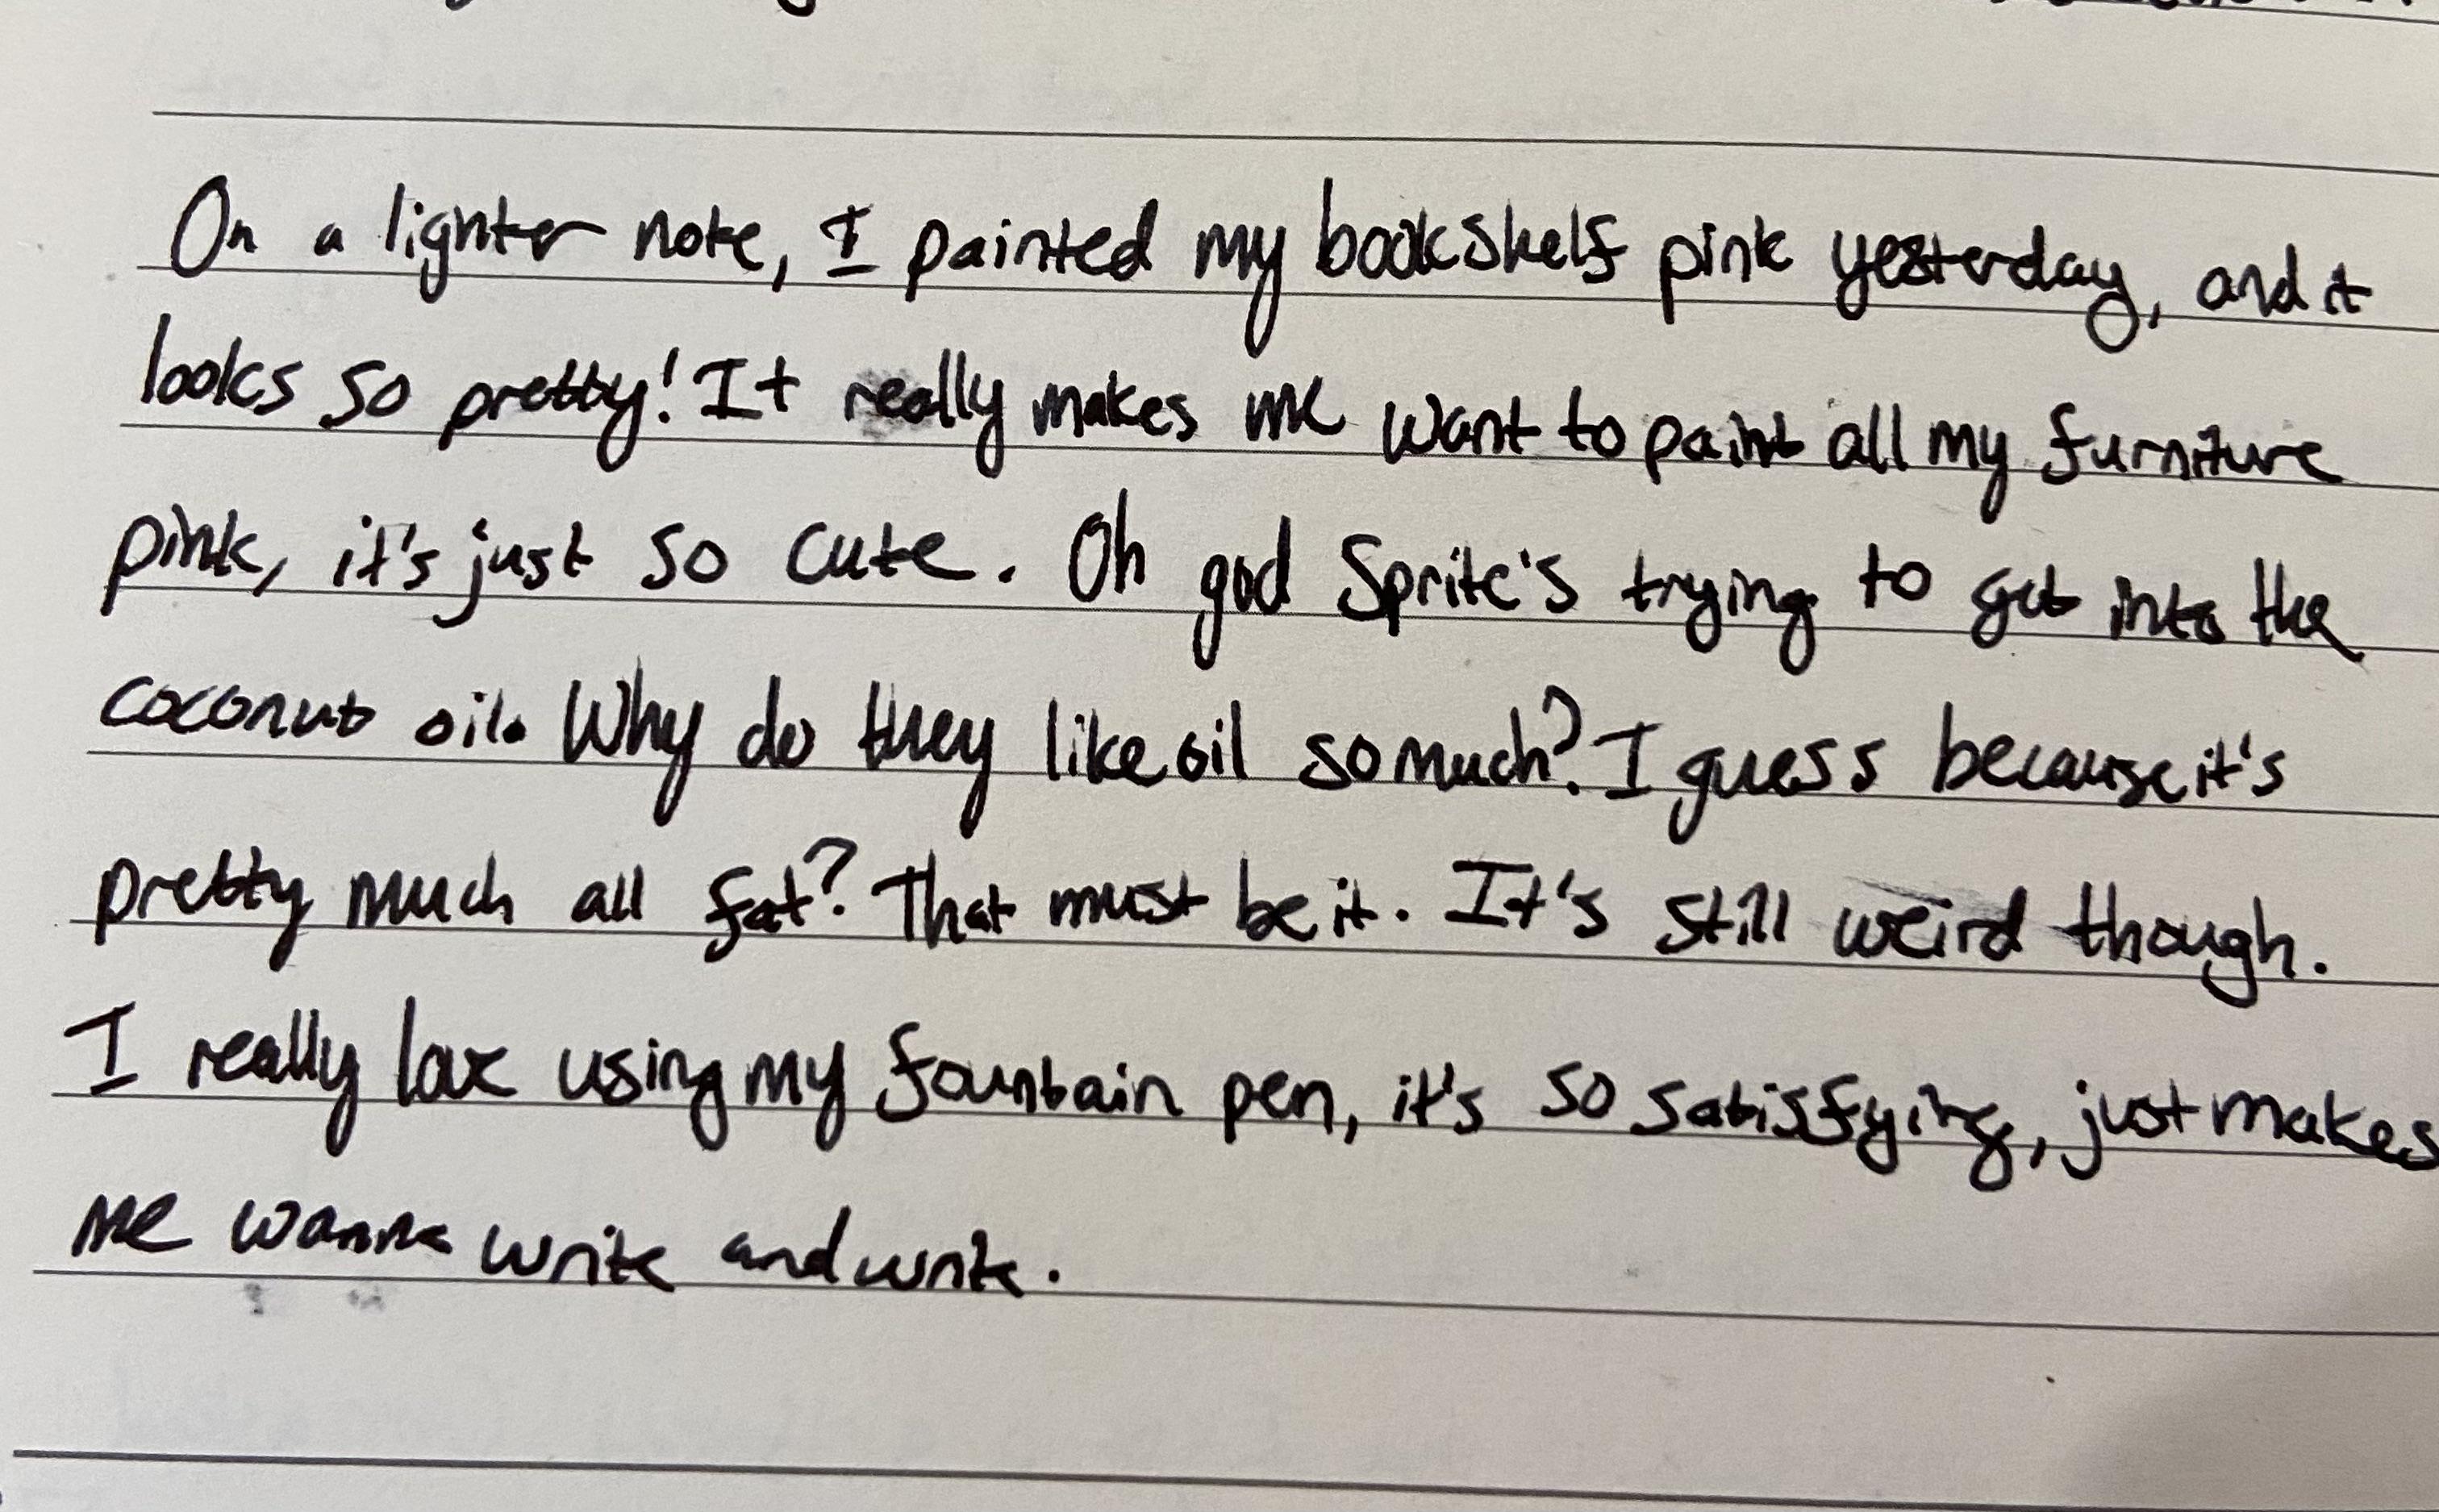 On a lighter note, I painted my bookshelf pink yesterday, and it
looks so pretty! It really makes me want to paint all my furniture
pink, it's just so cute. Oh god Sprite's trying to get into the
coconut oil. Why do they like oil so much? I guess because it's
pretty much all fat? That must be it. It's still weird though.
I really love using my fountain pen, it's so satisfying, just makes
me wanna write and write.